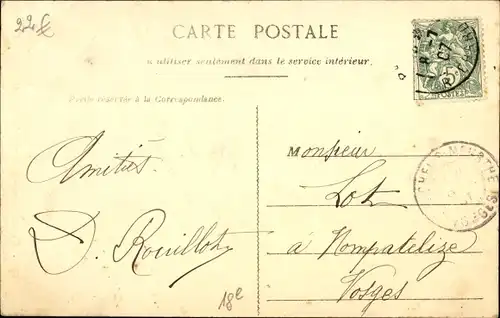 22 €
CARTE POSTALE
à utiliser seulement dans le service intérieur.
Partie réservée à la Correspondance.
Amitiés
D. Rouillot
Monsieur
Lot
à Nompatelize
Vosges
18e
07
MEURTHE
VOSGES